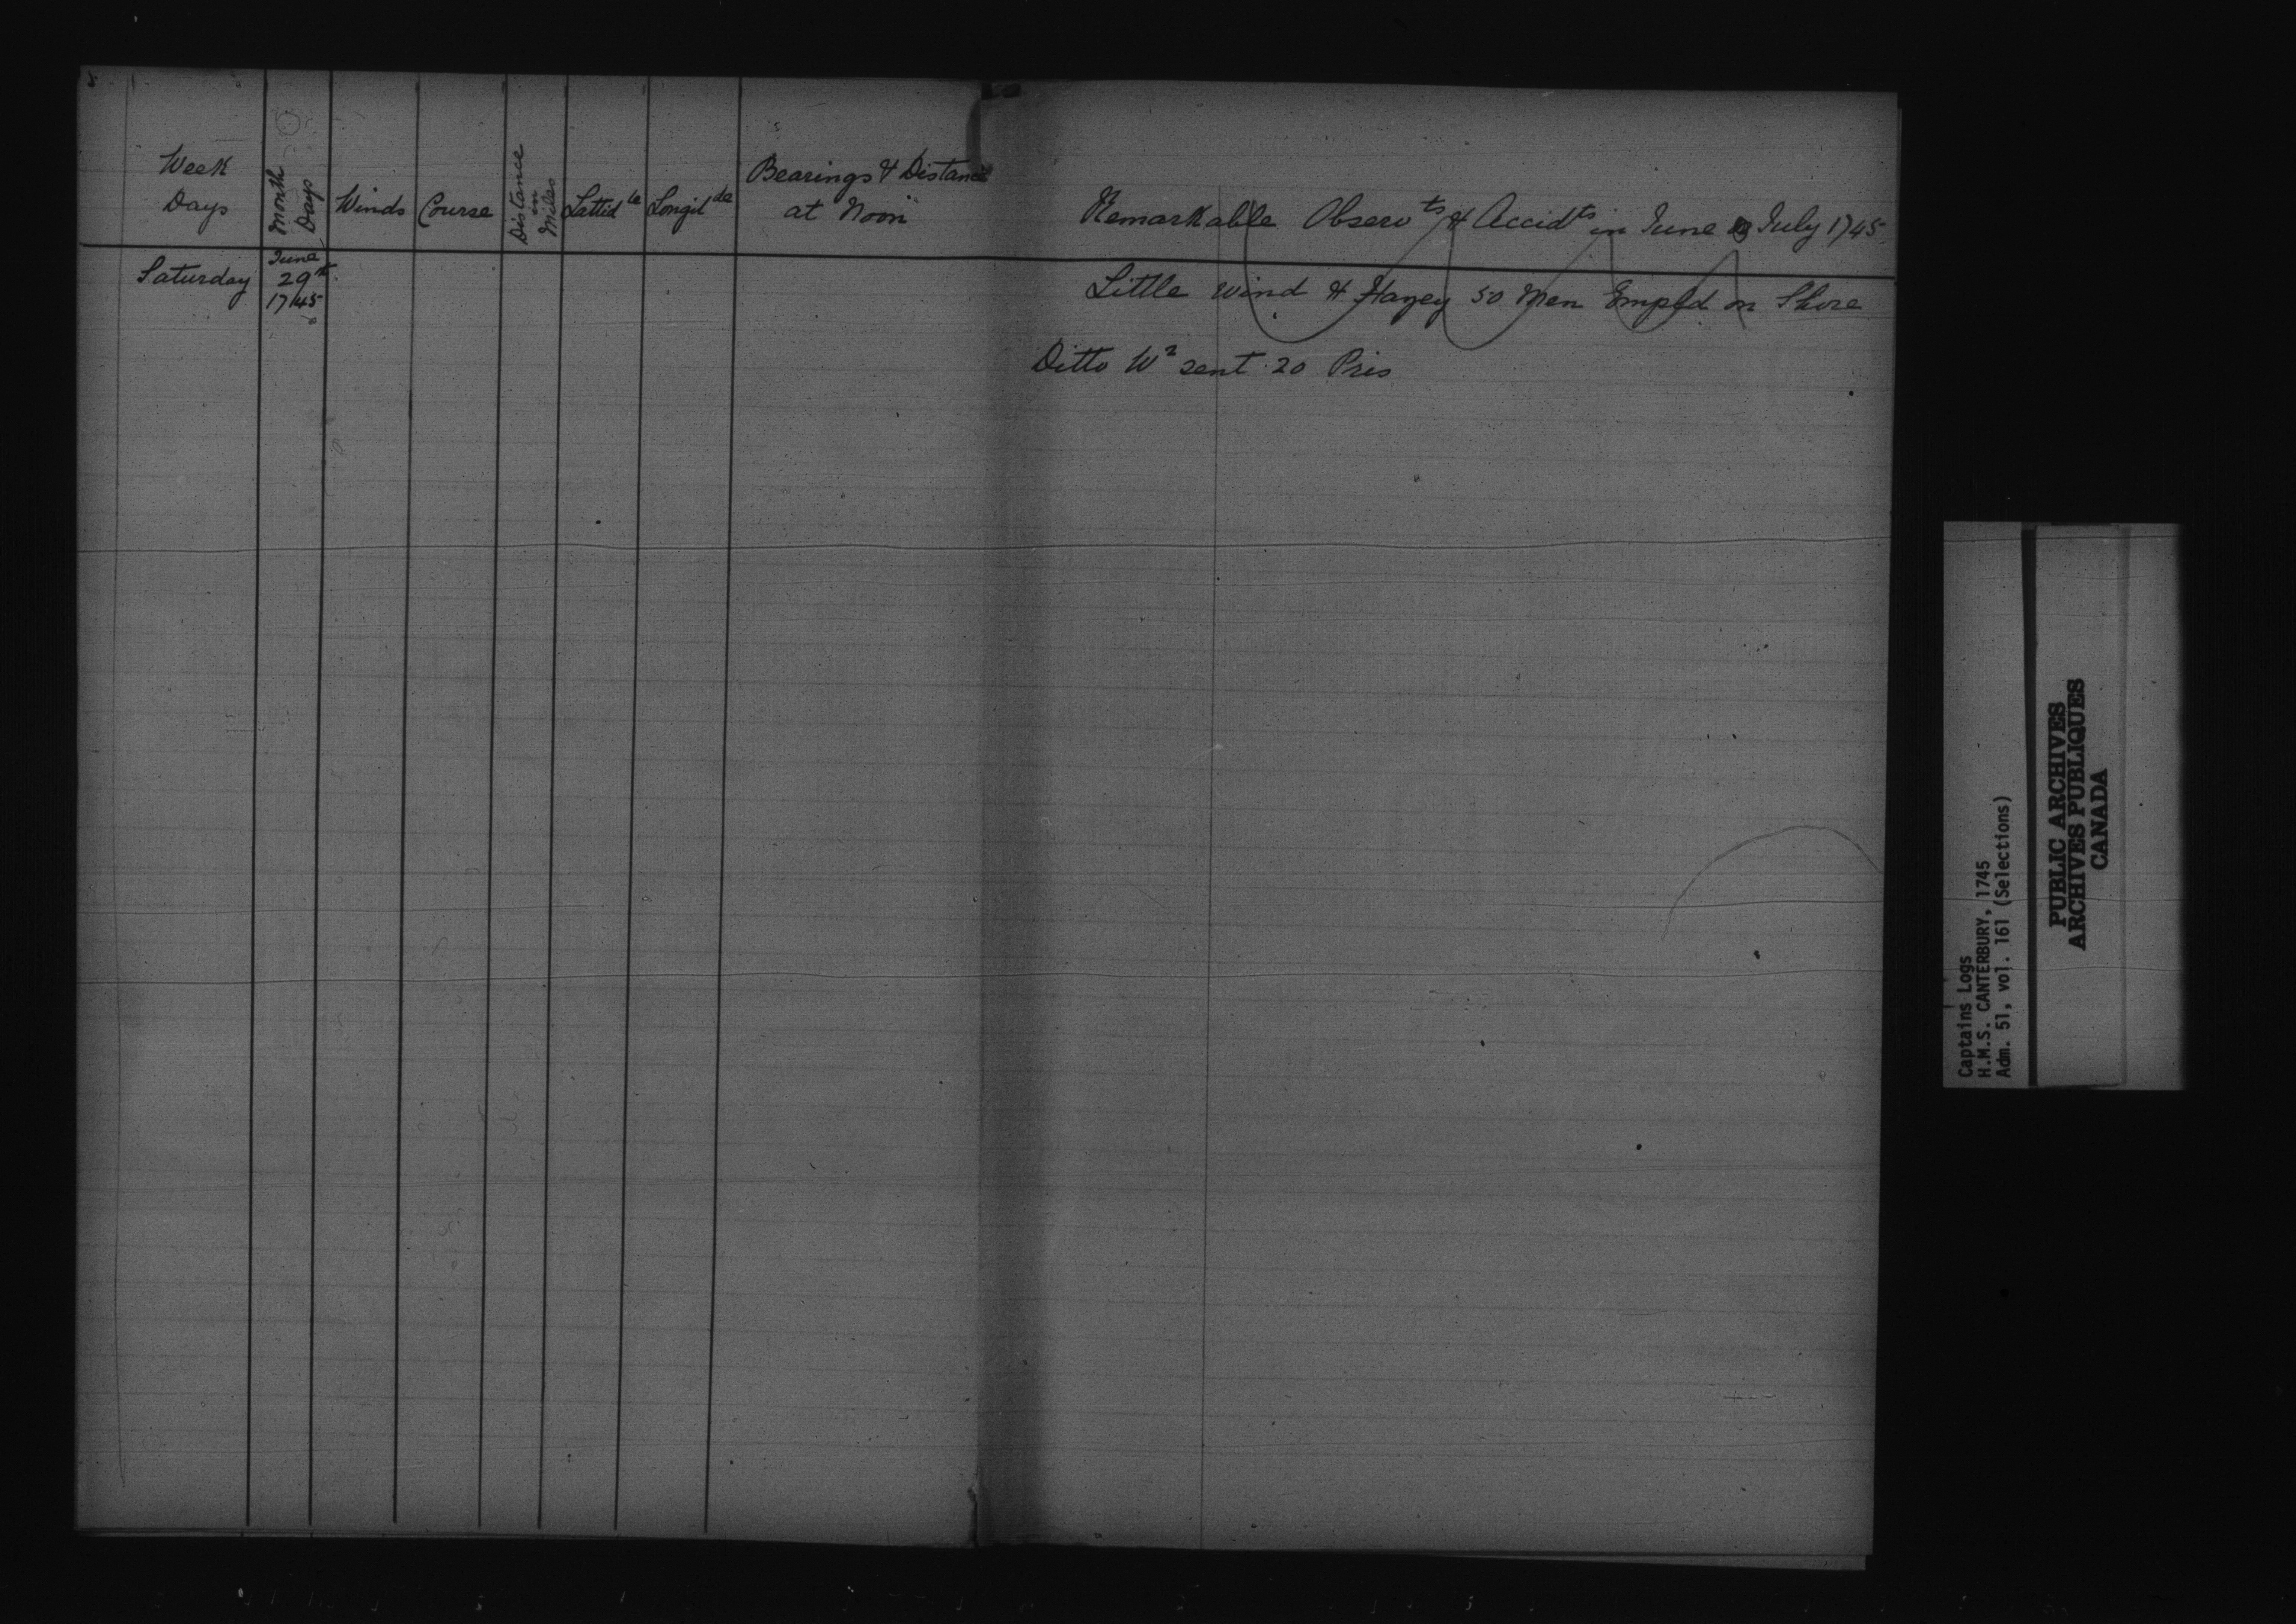 Week
Days
Month
Days
Winds
Course
Distance
in
Miles
Lattid te
Longit de
Bearings & Distance
at Noon
Remarkable Observ ts & Accid ts in June & July 1745
Saturday
June
29th
1745
Little wind & Hazey 50 Men Empld on Shore
Ditto Wr sent 20 Pris
Captains Logs
H.M.S. CANTERBURY, 1745
Adm. 51, vol. 161 (Selections)
PUBLIC ARCHIVES
ARCHIVES PUBLIQUES
CANADA